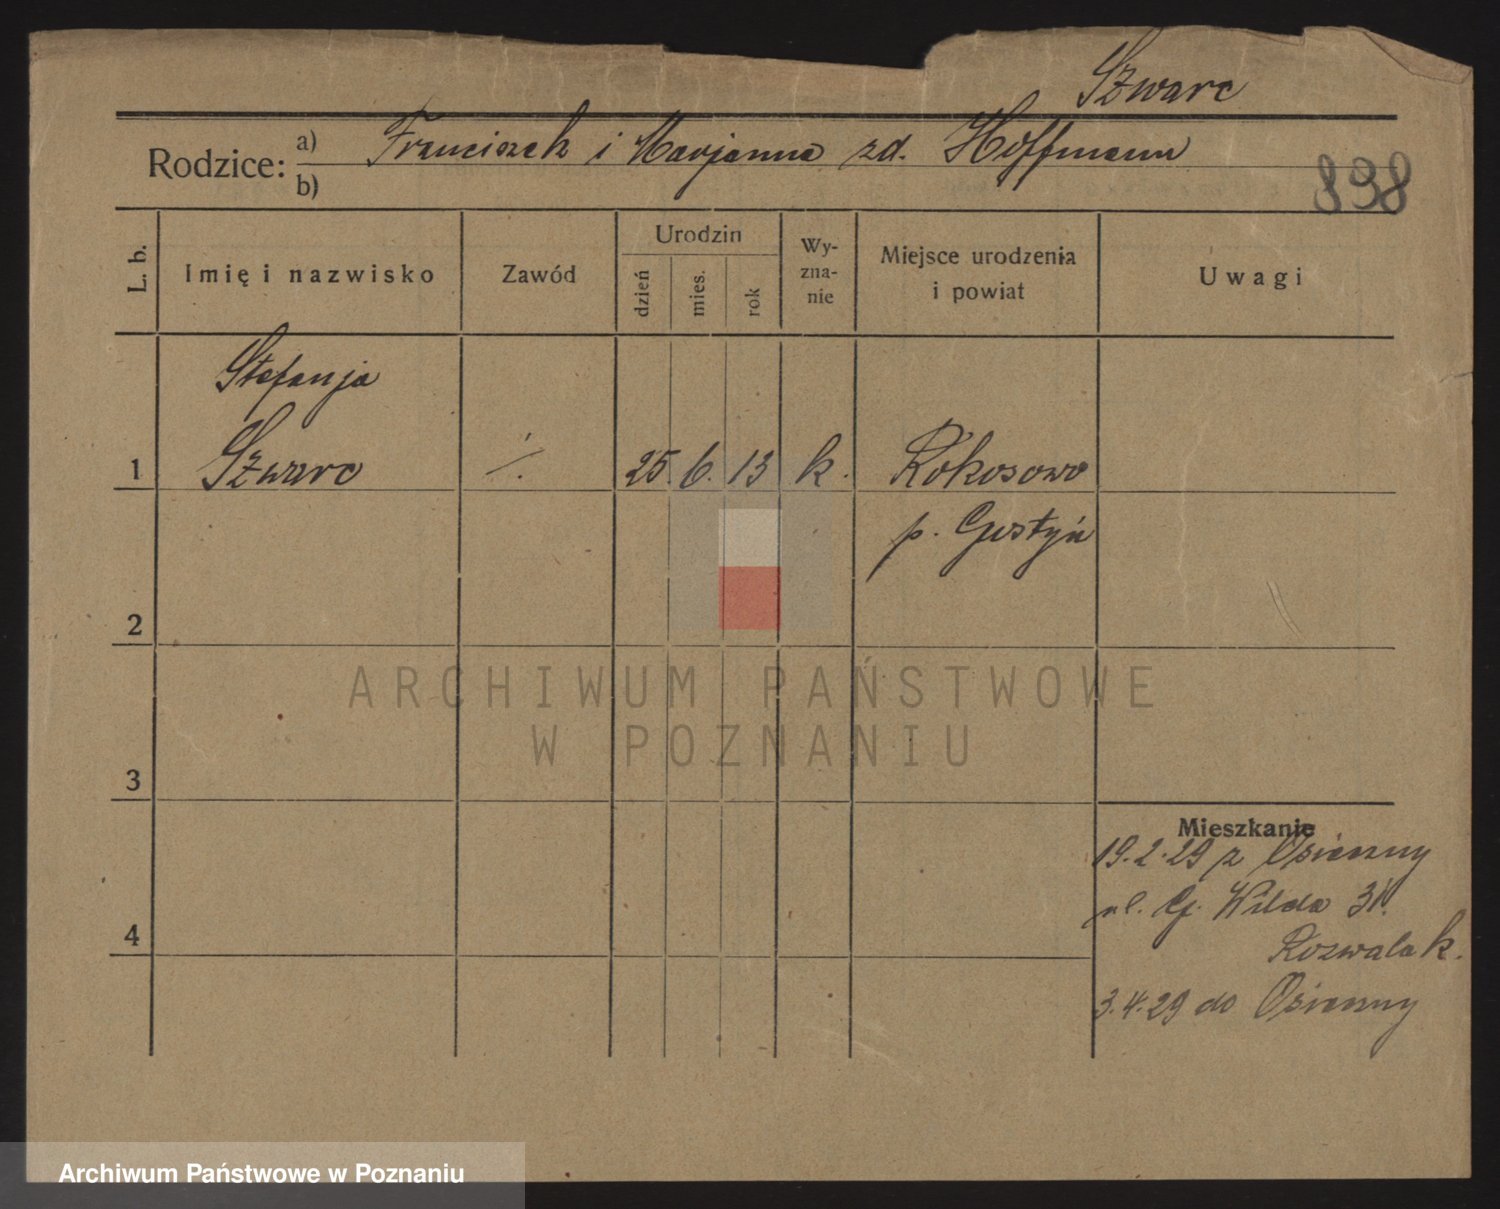 Szwarc
Rodzice: a) Franciszek i Marjanna zd. Hoffmann
b)
898
L. b.
Imię i nazwisko
Zawód
Urodzin
dzień
mies.
rok
Wy-
zna-
nie
Miejsce urodzenia
i powiat
Uwagi
Stefanja
1 Szwarc ·/. 25. 6. 13 k. Rokosowo
p. Gostyń
2
3
4
ARCHIWUM PAŃSTWOWE
W POZNANIU
Mieszkanie
19.2.29 z Osieczny
ul. G. Wilda 31.
Rozwalak.
3.4.29 do Osieczny
Archiwum Państwowe w Poznaniu